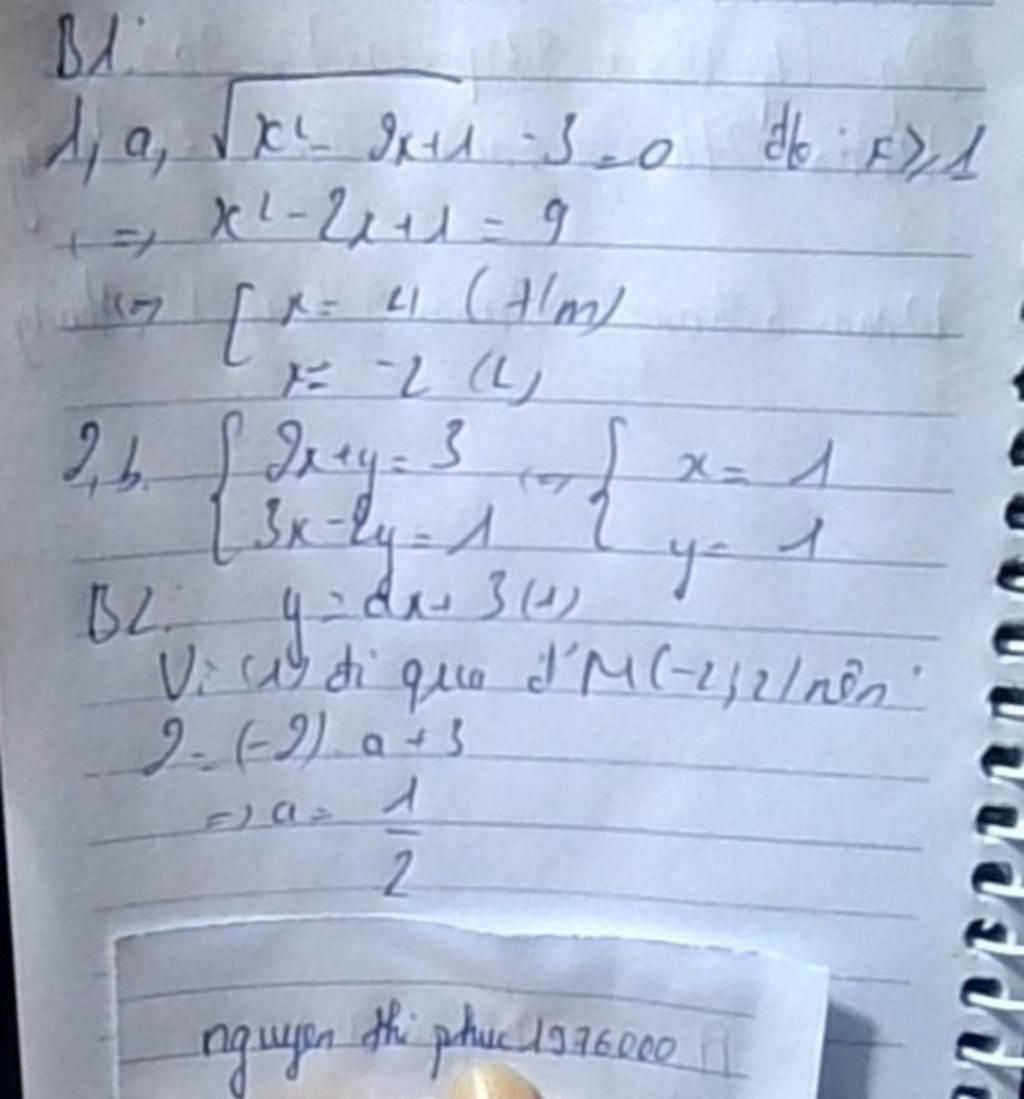 B1:
1, a, √x² - 2x+1 - 3 = 0 đk : x ≥ 1
<=> x² - 2x+1 = 9
<=> [ x = 4 (t/m)
x = -2 (L)
2, b. { 2x+y = 3 <=> { x = 1
3x-2y = 1 y = 1
B2: y = ax + 3 (1)
Vì (1) đi qua đ' M(-2; 2) nên
2 = (-2) . a + 3
=> a = 1
2
nguyen thi phuc 1976000